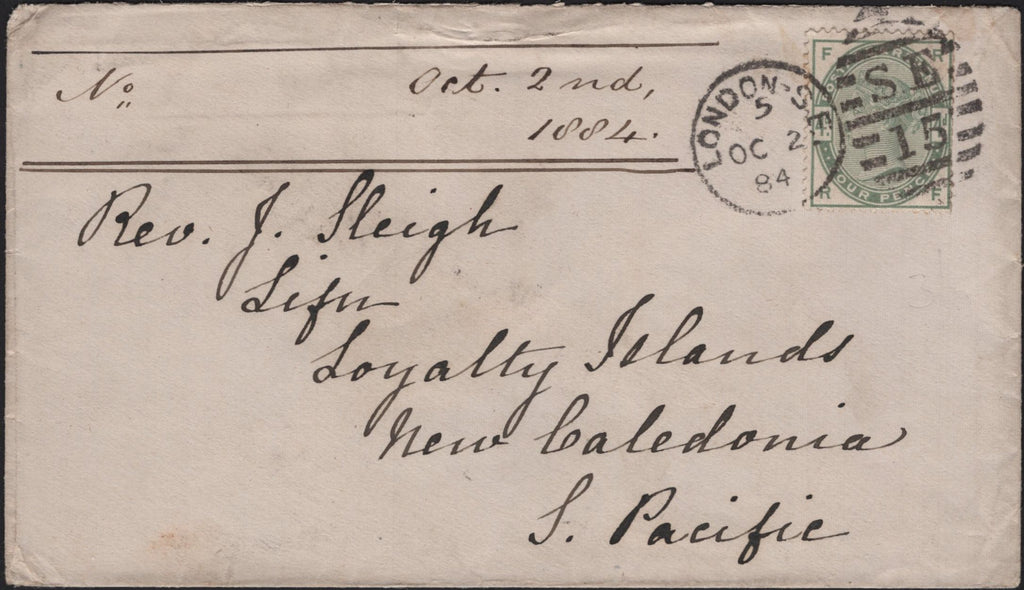 No Oct. 2nd,
1884.
LONDON-S.E.
5
OC 2
84
F R
S E
15
FOUR PENCE
R F
Rev. J. Sleigh
Lifu
Loyalty Islands
New Caledonia
S. Pacific